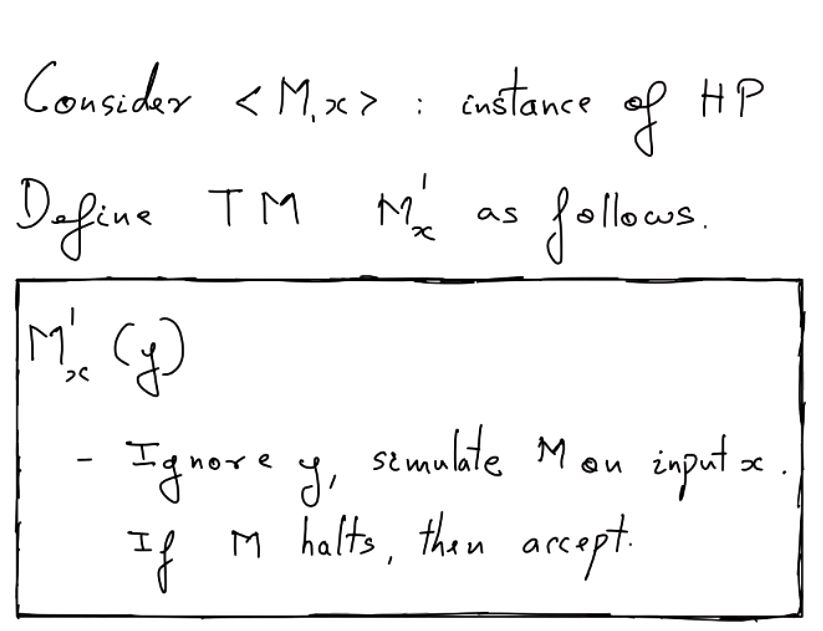 Consider <M, x> : instance of HP
Define TM M'ₓ as follows.
M'ₓ (y)
- Ignore y, simulate M on input x.
If M halts, then accept.